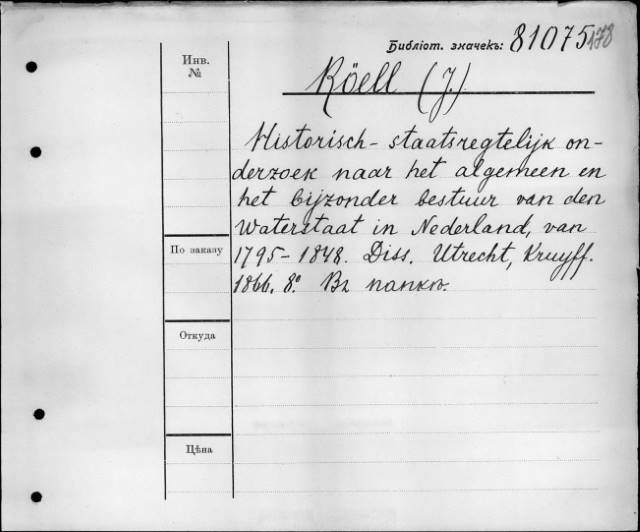 Библіот. значекъ: 81075 178
Инв.
№
Röell (J.)
Historisch-staatsregtelijk on-
derzoek naar het algemeen en
het bijzonder bestuur van den
Waterstaat in Nederland, van
1795-1848. Diss. Utrecht, Kruyff.
1866. 8° Въ папкѣ.
По заказу
Откуда
Цѣна